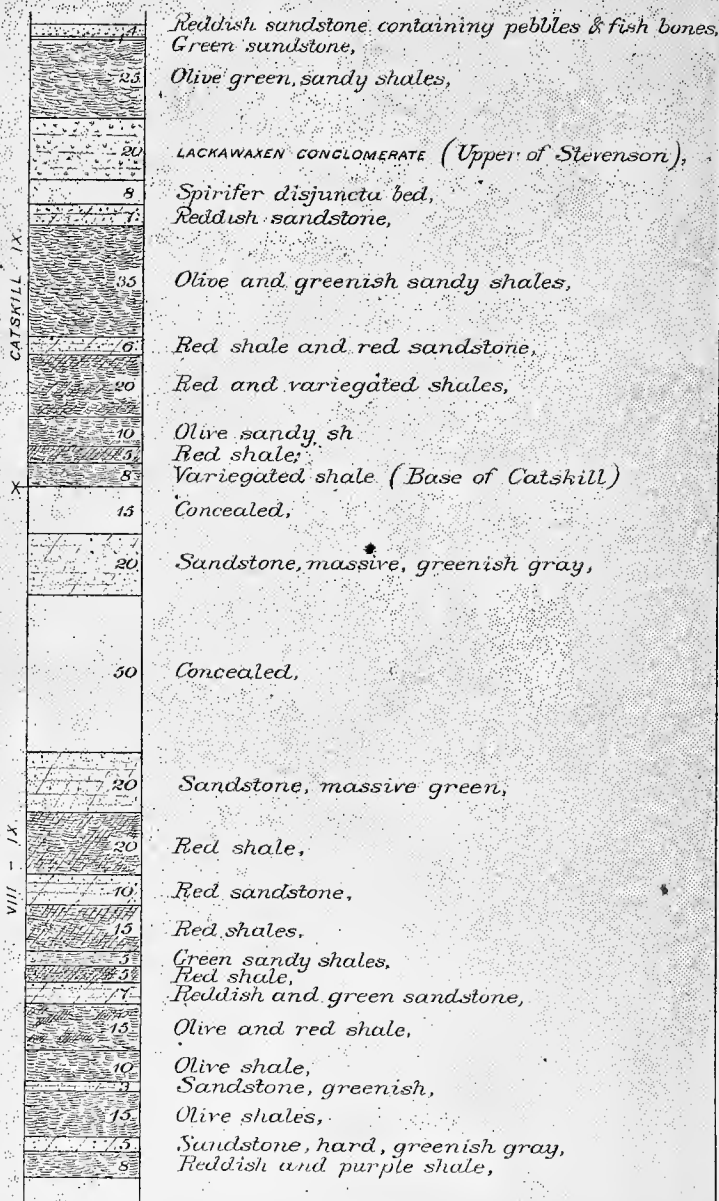 4 Reddish sandstone containing pebbles & fish bones,
Green sandstone,
25 Olive green, sandy shales,
20 LACKAWAXEN CONGLOMERATE (Upper of Stevenson),
8 Spirifer disjuncta bed,
7 Reddish sandstone,
CATSKILL IX.
35 Olive and greenish sandy shales,
6 Red shale and red sandstone,
20 Red and variegated shales,
10 Olive sandy sh
5 Red shale,
8 Variegated shale (Base of Catskill)
X
15 Concealed,
20 Sandstone, massive, greenish gray,
50 Concealed,
20 Sandstone, massive green,
VIII - IX
20 Red shale,
10 Red sandstone,
15 Red shales,
5 Green sandy shales,
5 Red shale,
7 Reddish and green sandstone,
15 Olive and red shale,
10 Olive shale,
3 Sandstone, greenish,
15 Olive shales,
5 Sandstone, hard, greenish gray,
8 Reddish and purple shale,